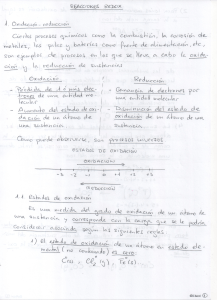 REACCIONES REDOX
1. Oxidación-reducción
Ciertos procesos químicos como la combustión, la corrosión de
metales, las pilas y baterías como fuente de alimentación, etc.,
son ejemplos de procesos en los que se lleva a cabo la oxida-
ción y la reducción de sustancias
Oxidación
Reducción
- Pérdida de electrones de una entidad mo-
lecular
- Ganancia de electrones por
una entidad molecular
- Aumento del estado de oxi-
dación de un átomo de
una sustancia
- Disminución del estado de
oxidación de un átomo de
una sustancia
Como puede observarse, son procesos inversos.
ESTADO DE OXIDACIÓN
OXIDACIÓN
-3 -2 -1 0 +1 +2 +3
REDUCCIÓN
1.1. Estados de oxidación
Es una medida del grado de oxidación de un átomo de
una sustancia y corresponde con la carga que se le podría
considerar según las siguientes reglas:
1) El estado de oxidación de un átomo en estado ele-
mental (no combinado) es cero